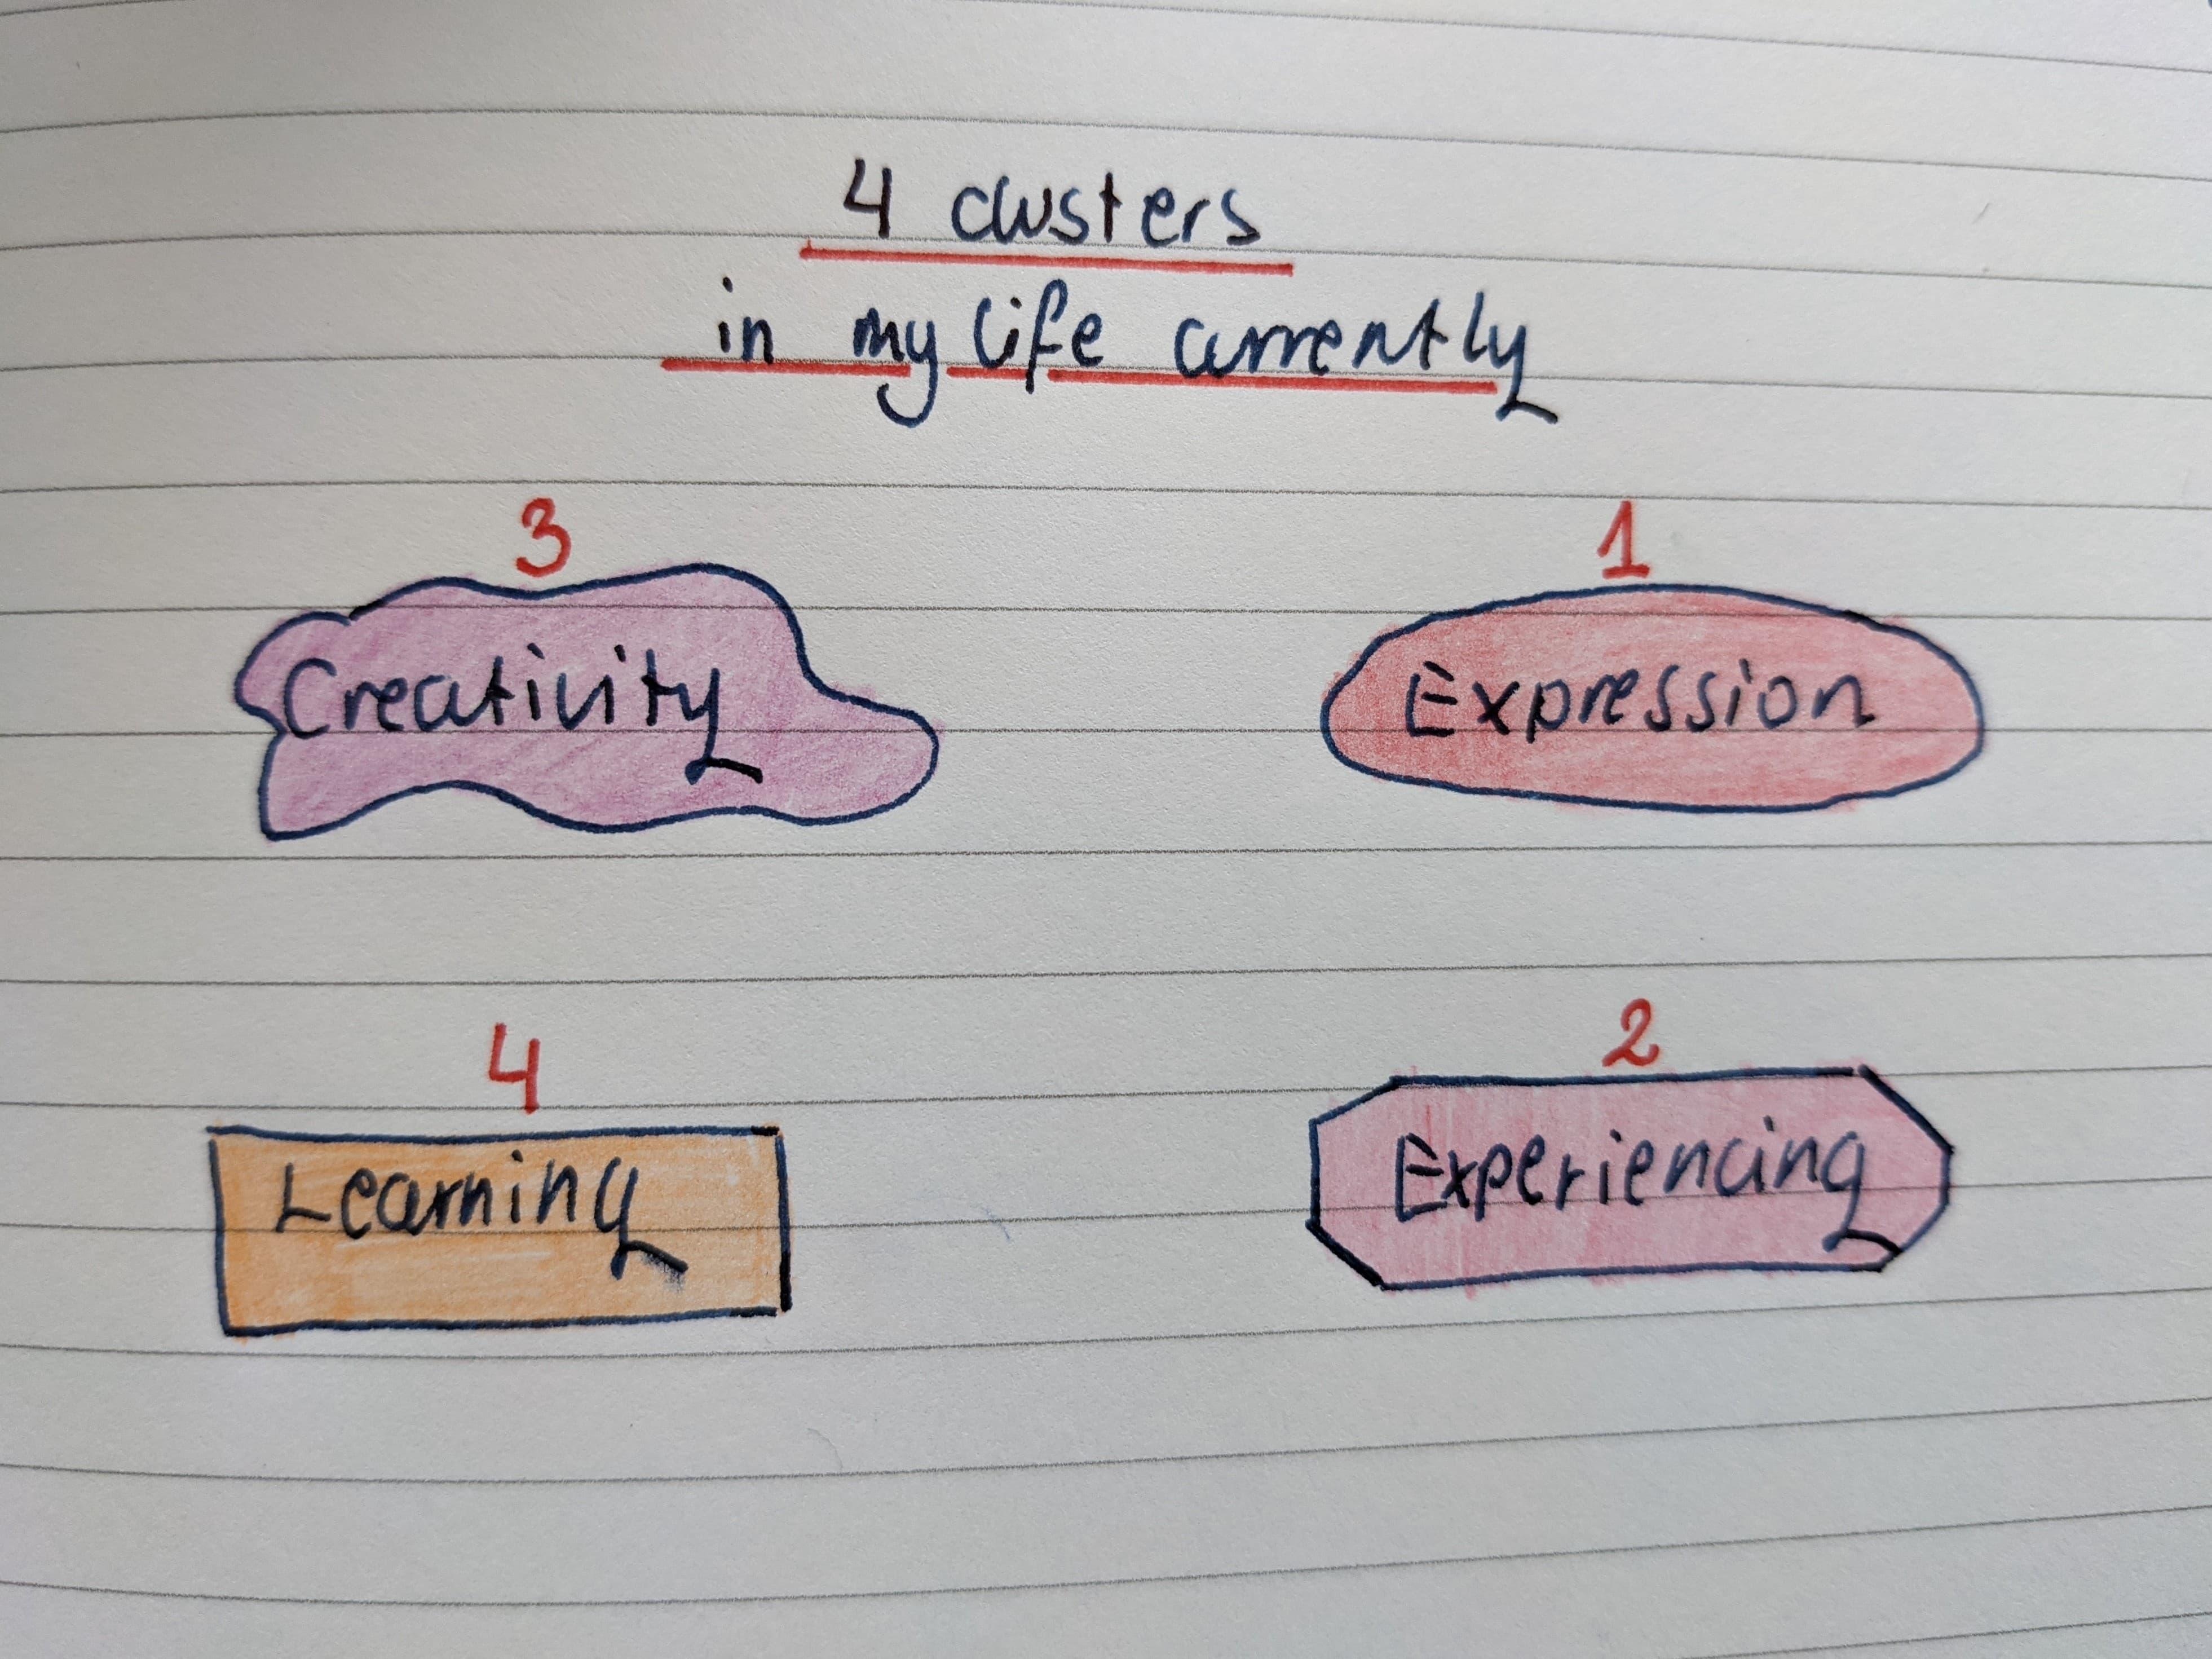 4 clusters
in my life currently
3
Creativity
1
Expression
4
Learning
2
Experiencing